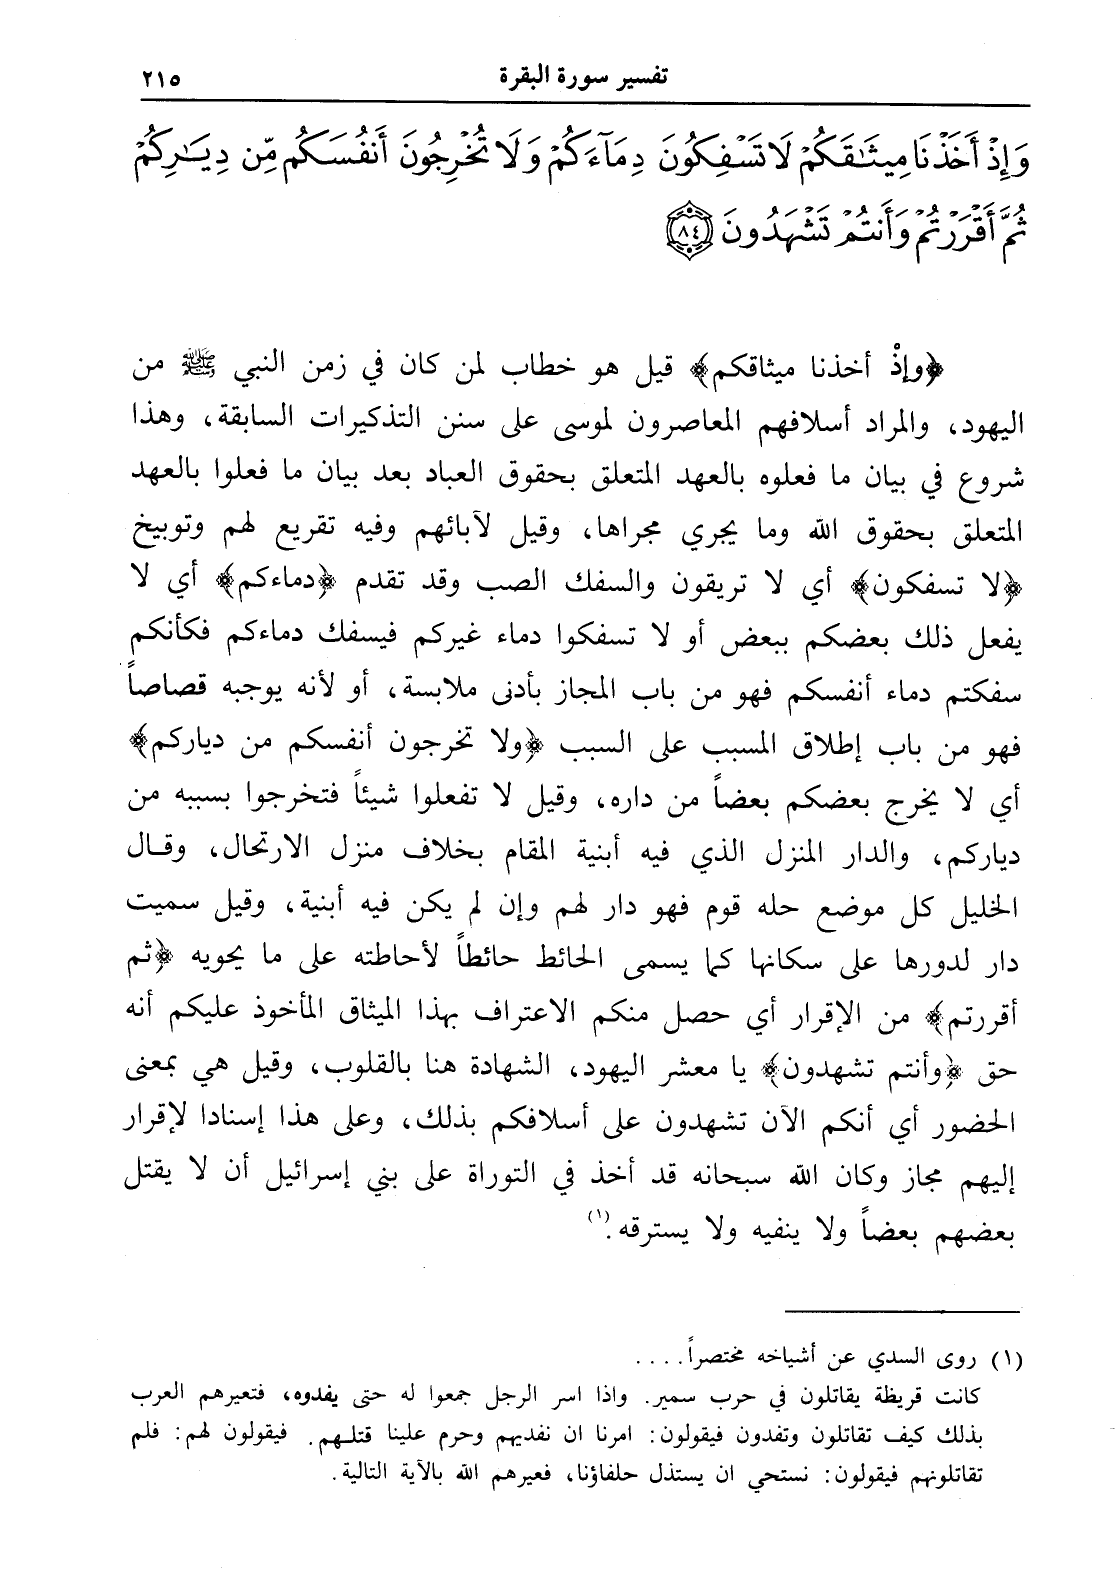 تفسير سورة البقرة ٢١٥
وَإِذْ أَخَذْنَا مِيثَٰقَكُمْ لَا تَسْفِكُونَ دِمَآءَكُمْ وَلَا تُخْرِجُونَ أَنفُسَكُم مِّن دِيَٰرِكُمْ
ثُمَّ أَقْرَرْتُمْ وَأَنتُمْ تَشْهَدُونَ ﴿٨٤﴾
﴿وإذْ أخذنا ميثاقكم﴾ قيل هو خطاب لمن كان في زمن النبي ﷺ من
اليهود، والمراد أسلافهم المعاصرون لموسى على سنن التذكيرات السابقة، وهذا
شروع في بيان ما فعلوه بالعهد المتعلق بحقوق العباد بعد بيان ما فعلوا بالعهد
المتعلق بحقوق الله وما يجري مجراها، وقيل لآبائهم وفيه تقريع لهم وتوبيخ
﴿لا تسفكون﴾ أي لا تريقون والسفك الصب وقد تقدم ﴿دماءكم﴾ أي لا
يفعل ذلك بعضكم ببعض أو لا تسفكوا دماء غيركم فيسفك دماءكم فكأنكم
سفكتم دماء أنفسكم فهو من باب المجاز بأدنى ملابسة، أو لأنه يوجبه قصاصاً
فهو من باب إطلاق المسبب على السبب ﴿ولا تخرجون أنفسكم من دياركم﴾
أي لا يخرج بعضكم بعضاً من داره، وقيل لا تفعلوا شيئاً فتخرجوا بسببه من
دياركم، والدار المنزل الذي فيه أبنية المقام بخلاف منزل الارتحال، وقال
الخليل كل موضع حله قوم فهو دار لهم وإن لم يكن فيه أبنية، وقيل سميت
دار لدورها على سكانها كما يسمى الحائط حائطاً لأحاطته على ما يحويه ﴿ثم
أقررتم﴾ من الإقرار أي حصل منكم الاعتراف بهذا الميثاق المأخوذ عليكم أنه
حق ﴿وأنتم تشهدون﴾ يا معشر اليهود، الشهادة هنا بالقلوب، وقيل هي بمعنى
الحضور أي أنكم الآن تشهدون على أسلافكم بذلك، وعلى هذا إسنادا لإقرار
إليهم مجاز وكان الله سبحانه قد أخذ في التوراة على بني إسرائيل أن لا يقتل
بعضهم بعضاً ولا ينفيه ولا يسترقه.(١)
(١) روى السدي عن أشياخه مختصراً....
كانت قريظة يقاتلون في حرب سمير. واذا اسر الرجل جمعوا له حتى يفدوه، فتعيرهم العرب
بذلك كيف تقاتلون وتفدون فيقولون: امرنا ان نفديهم وحرم علينا قتلهم. فيقولون لهم: فلم
تقاتلونهم فيقولون: نستحي ان يستذل حلفاؤنا، فعيرهم الله بالآية التالية.